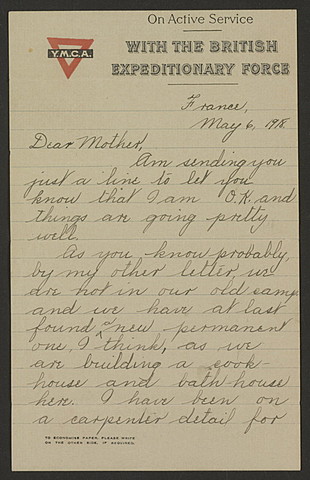 Y.M.C.A.
On Active Service
WITH THE BRITISH
EXPEDITIONARY FORCE
France,
May 6, 1918.
Dear Mother,
Am sending you
just a line to let you
know that I am O.K. and
things are going pretty
well.
As you know probably,
by my other letter, we
are not in our old camp
and we have at last
found a new permanent
one, I think, as we
are building a cook-
house and bath-house
here. I have been on
a carpenter detail for
TO ECONOMISE PAPER, PLEASE WRITE
ON THE OTHER SIDE, IF REQUIRED.